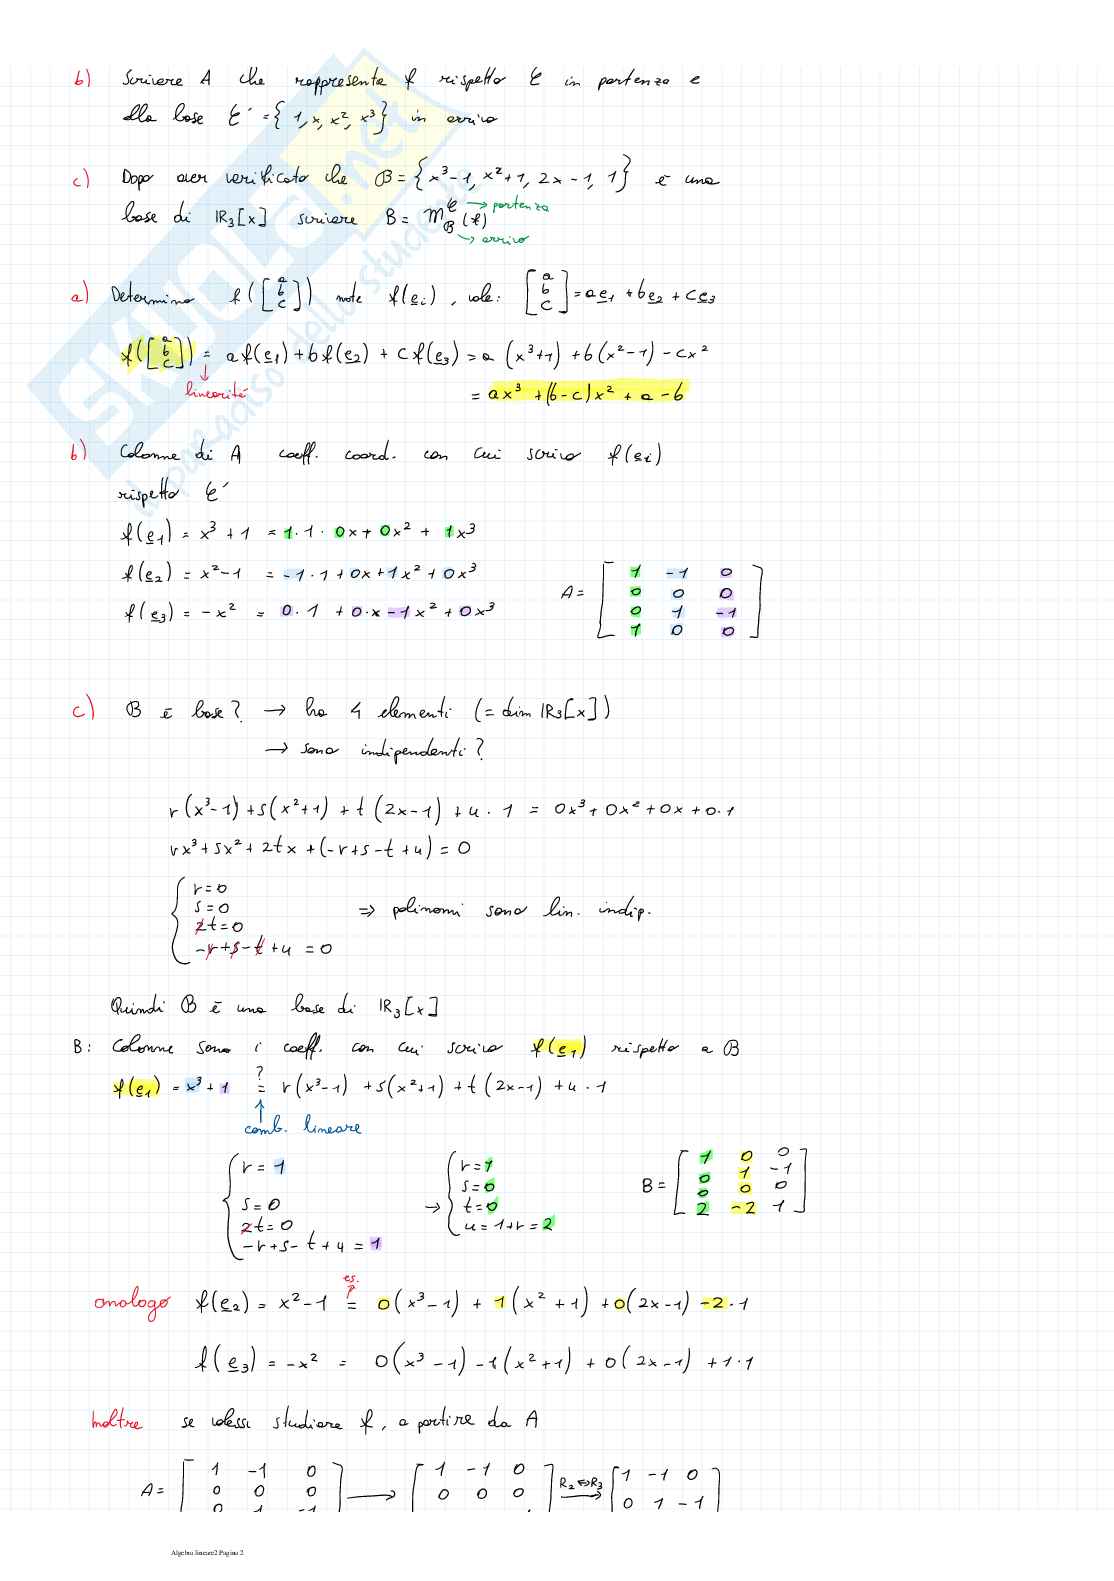 b) Scrivere A che rappresenta f rispetto E in partenza e
alla base E' = { 1, x, x², x³ } in arrivo
c) Dopo aver verificato che B = { x³-1, x²+1, 2x-1, 1 } è una
base di ℝ₃[x] scrivere B = M^E_B (f)
→ partenza
→ arrivo
a) Determino f([a b c]) note f(e_i), vale: [a b c] = ae₁ + be₂ + ce₃
f([a b c]) = a f(e₁) + b f(e₂) + c f(e₃) = a (x³+1) + b(x²-1) - cx²
↓
linearità
= ax³ + (b-c)x² + a - b
b) Colonne di A coeff. coord. con cui scrivo f(e_i)
rispetto E'
f(e₁) = x³ + 1 = 1·1· 0x + 0x² + 1x³
f(e₂) = x²-1 = -1·1 + 0x + 1x² + 0x³
f(e₃) = -x² = 0·1 + 0·x - 1x² + 0x³
A = [ 1 -1 0
0 0 0
0 1 -1
1 0 0 ]
c) B è base? → ha 4 elementi (= dim ℝ₃[x])
→ sono indipendenti?
r(x³-1) + s(x²+1) + t(2x-1) + u·1 = 0x³ + 0x² + 0x + 0·1
rx³ + sx² + 2tx + (-r+s-t+u) = 0
{ r=0
s=0
2t=0
-r+s-t+u = 0
⇒ polinomi sono lin. indip.
Quindi B è una base di ℝ₃[x]
B: Colonne sono i coeff. con cui scrivo f(e₁) rispetto a B
f(e₁) = x³ + 1 =? r(x³-1) + s(x²+1) + t(2x-1) + u·1
↑
comb. lineare
{ r = 1
s = 0
2t = 0
-r+s-t+u = 1
→ { r=1
s=0
t=0
u = 1+r = 2
B = [ 1 0 0
0 1 -1
0 0 0
2 -2 1 ]
es.
?
analogo f(e₂) = x²-1 = 0(x³-1) + 1(x²+1) + 0(2x-1) -2·1
f(e₃) = -x² = 0(x³-1) -1(x²+1) + 0(2x-1) + 1·1
Inoltre se volessi studiare f, a partire da A
A = [ 1 -1 0
0 0 0
0 1 -1
→ [ 1 -1 0
0 0 0
R₂⇔R₃
→ [ 1 -1 0
0 1 -1
Algebra lineare2 Pagina 2
SKUOLA.net
il paradiso dello studente